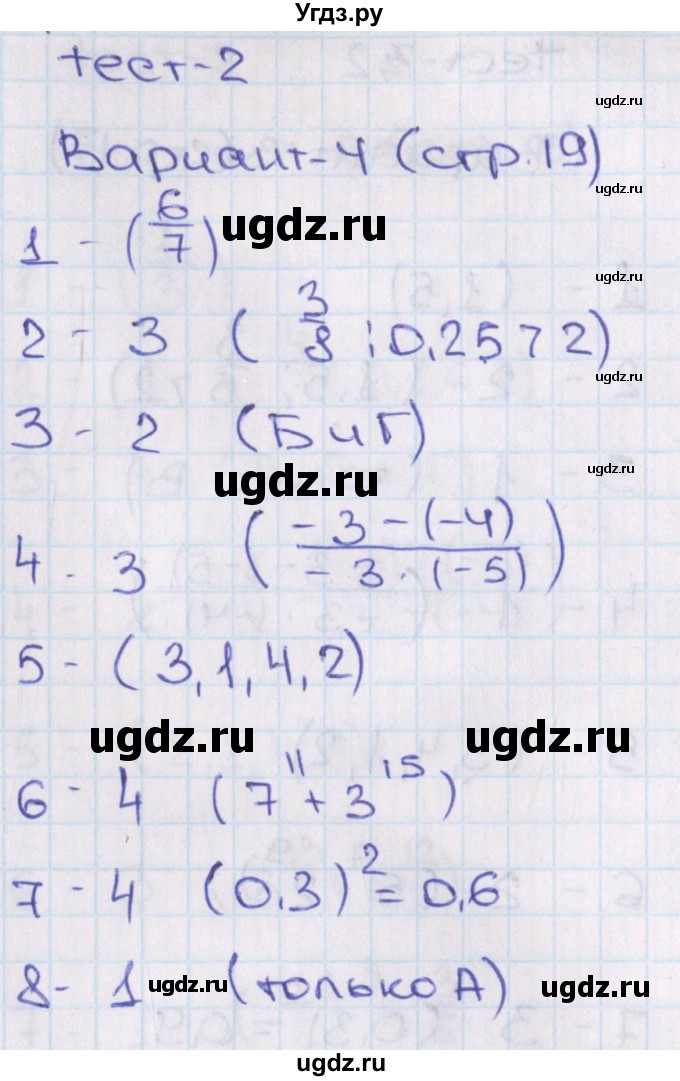 Угдз.ру
тест-2
ugdz.ru
Вариант-4 (стр.19)
ugdz.ru
1 - (6/7)
ugdz.ru
ugdz.ru
2 - 3 (3/9 ; 0,25 > 2)
ugdz.ru
3 - 2 (Б и Г)
ugdz.ru
ugdz.ru
4 - 3 (-3-(-4)/-3·(-5))
5 - (3,1,4,2)
ugdz.ru
ugdz.ru
6 - 4 (7¹¹+3¹⁵)
7 - 4 (0,3)²=0,6
8 - 1 (только А)
ugdz.ru
ugdz.ru
ugdz.ru